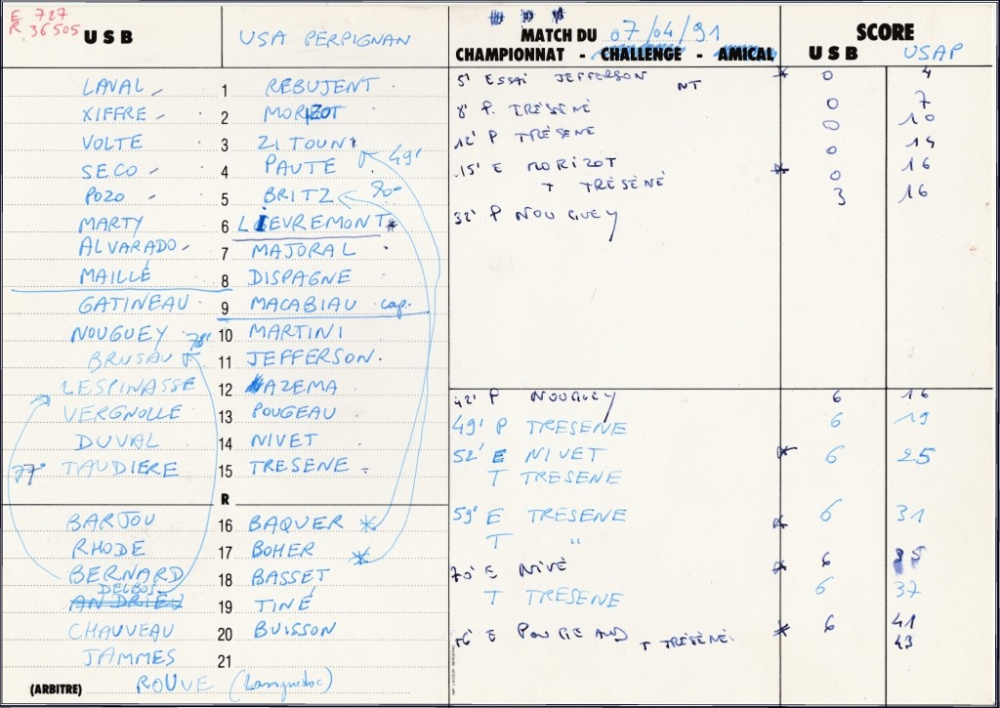 E 727
R 36505
USB
USA PERPIGNAN
MATCH DU 07/04/91
CHAMPIONNAT - CHALLENGE - AMICAL
SCORE
USB USAP
LAVAL 1 REBUJENT
XIFFRE 2 MORIZOT
VOLTE 3 ZITOUNI
SECO 4 PAUTE 49'
POZO 5 BRITZ 70'
MARTY 6 LIEVREMONT *
ALVARADO 7 MAJORAL
MAILLÉ 8 DISPAGNE
GATINEAU 9 MACABIAU cap.
NOUGUEY 78' 10 MARTINI
BRUSAU 11 JEFFERSON
LESPINASSE 12 AZEMA
VERGNOLLE 13 POUGEAU
DUVAL 14 NIVET
77' TAUDIERE 15 TRESENE
R
BARJOU 16 BAQUER *
RHODE 17 BOHER *
BERNARD 18 BASSET
DELBOS
ANDRIEU 19 TINÉ
CHAUVEAU 20 BUISSON
JAMMES 21
(ARBITRE) ROUVE (Languedoc)
5' ESSAI JEFFERSON NT * 0 4
8' P. TRÉSÈNE 0 7
12' P TRÉSÈNE 0 10
15' E MORIZOT * 0 14
T TRÉSÈNÉ 0 16
32' P NOUGUEY 3 16
42' P NOUGUEY 6 16
49' P TRESENE 6 19
52' E NIVET * 6 25
T TRESENE
59' E TRESENE * 6 31
T "
70' E NIVÉ * 6 35
T TRESENE 6 37
E POUGEAUD T TRÉSÈNÉ * 6 41
43